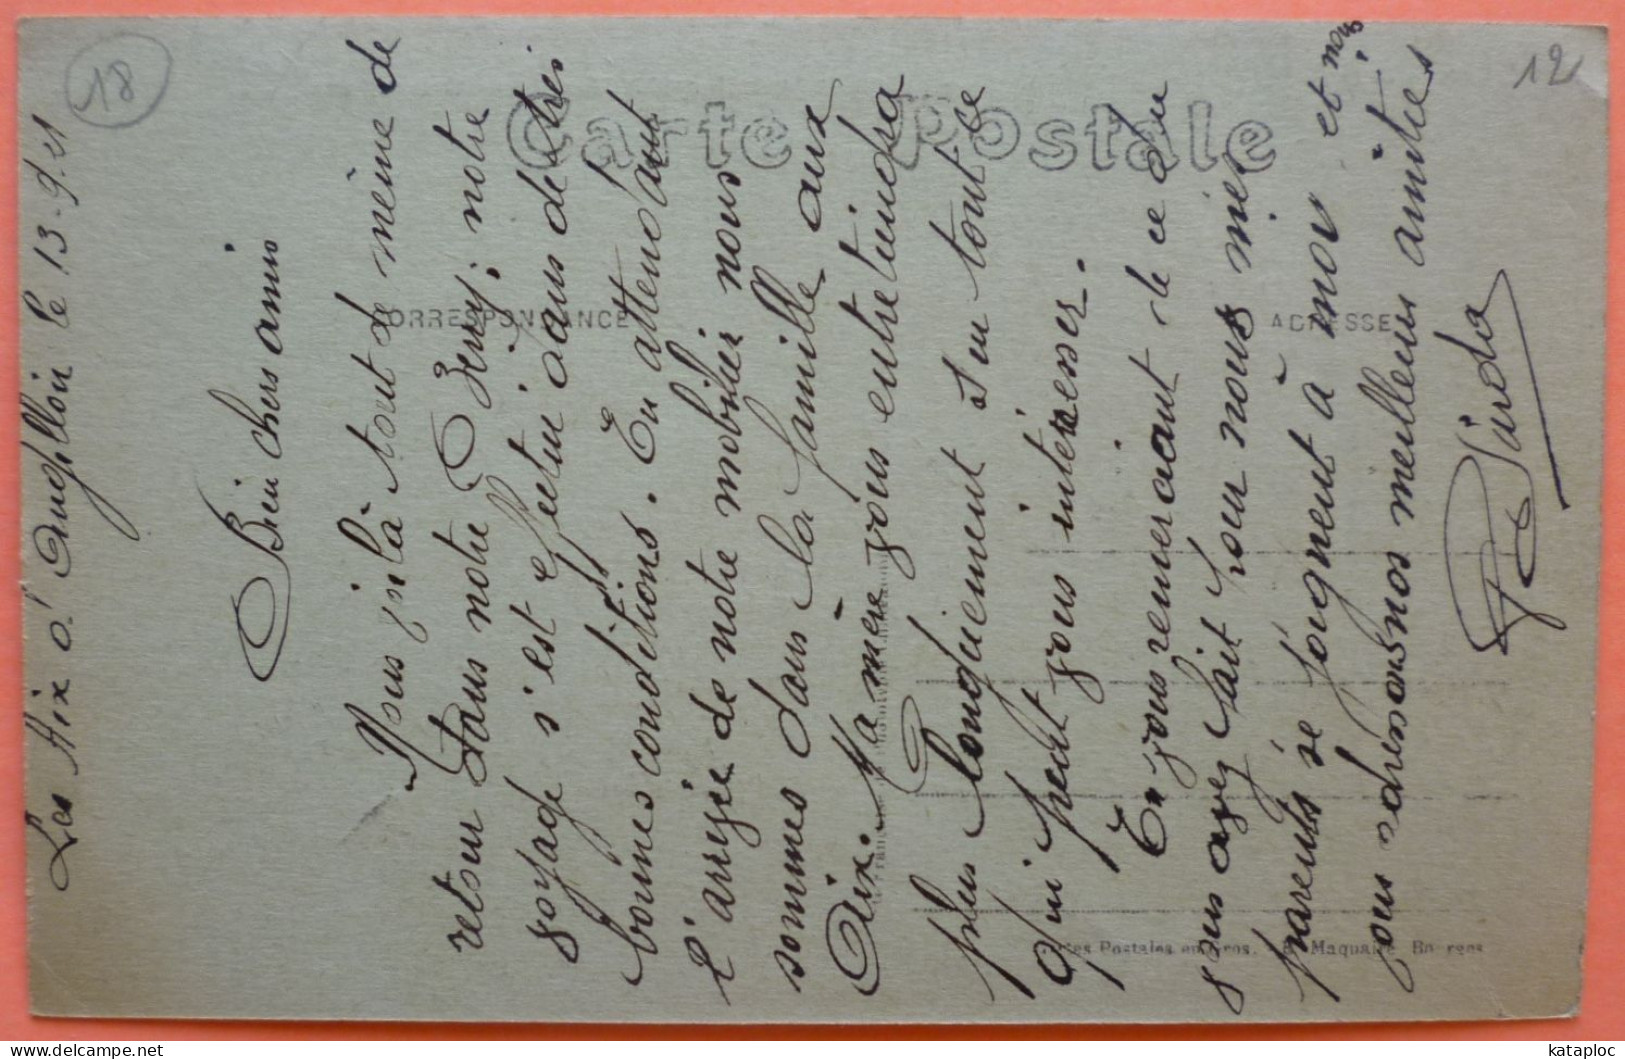 Les Aix d'Angillon le 13.9.21
Bien chers amis
Nous voilà tout de même de
retour dans notre Berry; notre
voyage s'est effectué dans de très
bonnes conditions. En attendant
l'arrivée de notre mobilier nous
sommes dans la famille aux
Aix. Ma mère vous entretiendra
plus longuement sur tout ce
qui peut vous intéresser.
En vous remerciant de ce que
vous avez fait pour nous mes
parents se joignent à moi et nous
vous adressons nos meilleurs amitiés
18
12
Carte Postale
CORRESPONDANCE
ADRESSE
Postales en Gros. Maquaire Bourges
kataploc
delcampe.net